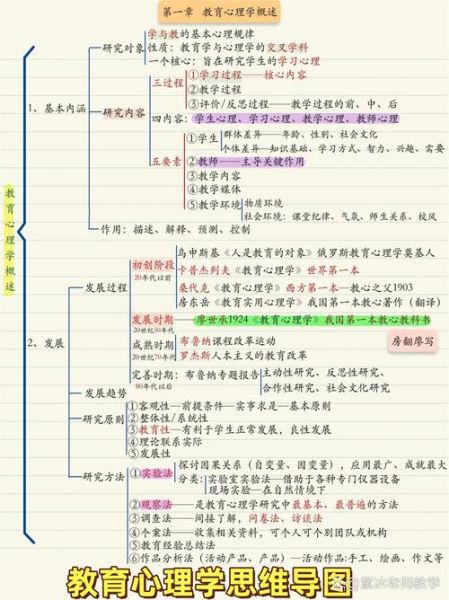 第一章 教育心理学概述
教育心理学概述
1、基本内涵
研究对象
学与教的基本心理规律
性质：教育学与心理学的交叉学科
一个核心：旨在研究学生的学习心理
研究内容
三过程
①学习过程——核心内容
②教学过程
③评价/反思过程——教学过程的前、中、后
四内容：学生心理、学习心理、教学心理、教师心理
五要素
①学生
群体差异——年龄、性别、社会文化
个体差异—知识基础、学习方式、智力、兴趣、需要
②教师——主导关键作用
③教学内容
④教学媒体
⑤教学环境
物质环境
社会环境：课堂纪律、气氛、师生关系、校风
作用：描述、解释、预测、控制
2、发展
发展过程
初创阶段
20年代以前
乌申斯基《人是教育的对象》俄罗斯教育心理学奠基人
卡普杰列夫《教育心理学》世界第一本
桑代克《教育心理学》西方第一本——教心之父1903
房东岳《教育实用心理学》我国第一本教心著作（翻译）
发展时期——廖世承1924《教育心理学》我国第一本教心教科书
20世纪50年代
房翻廖写
成熟时期
20世纪70年代
布鲁纳课程改革运动
罗杰斯人本主义的教育改革
完善时期：布鲁纳专题报告
80年代以后
主动性研究、反思性研究、
合作性研究、社会文化研究
发展趋势
研究原则
①客观性—前提条件—实事求是—基本原则
②整体性/系统性
③教育性—有利于学生正常发展，良性发展
④理论联系实际
⑤发展性
研究方法
①实验法
探讨因果关系（自变量、因变量），应用最广、成就最大
分类：
实验室实验法—借助于各种专门仪器设备
现场实验—在自然情境下
②观察法——是教育心理学研究中最基本、最普遍的方法
③调查法—间接了解，问卷法、访谈法
④个案法——收集相关资料，可个人可个别团队或机构
⑤教育经验总结法
⑥作品分析法（活动产品、产品）—活动作品:手工、绘画、作文等
教育心理学思维导图
冰老师教学